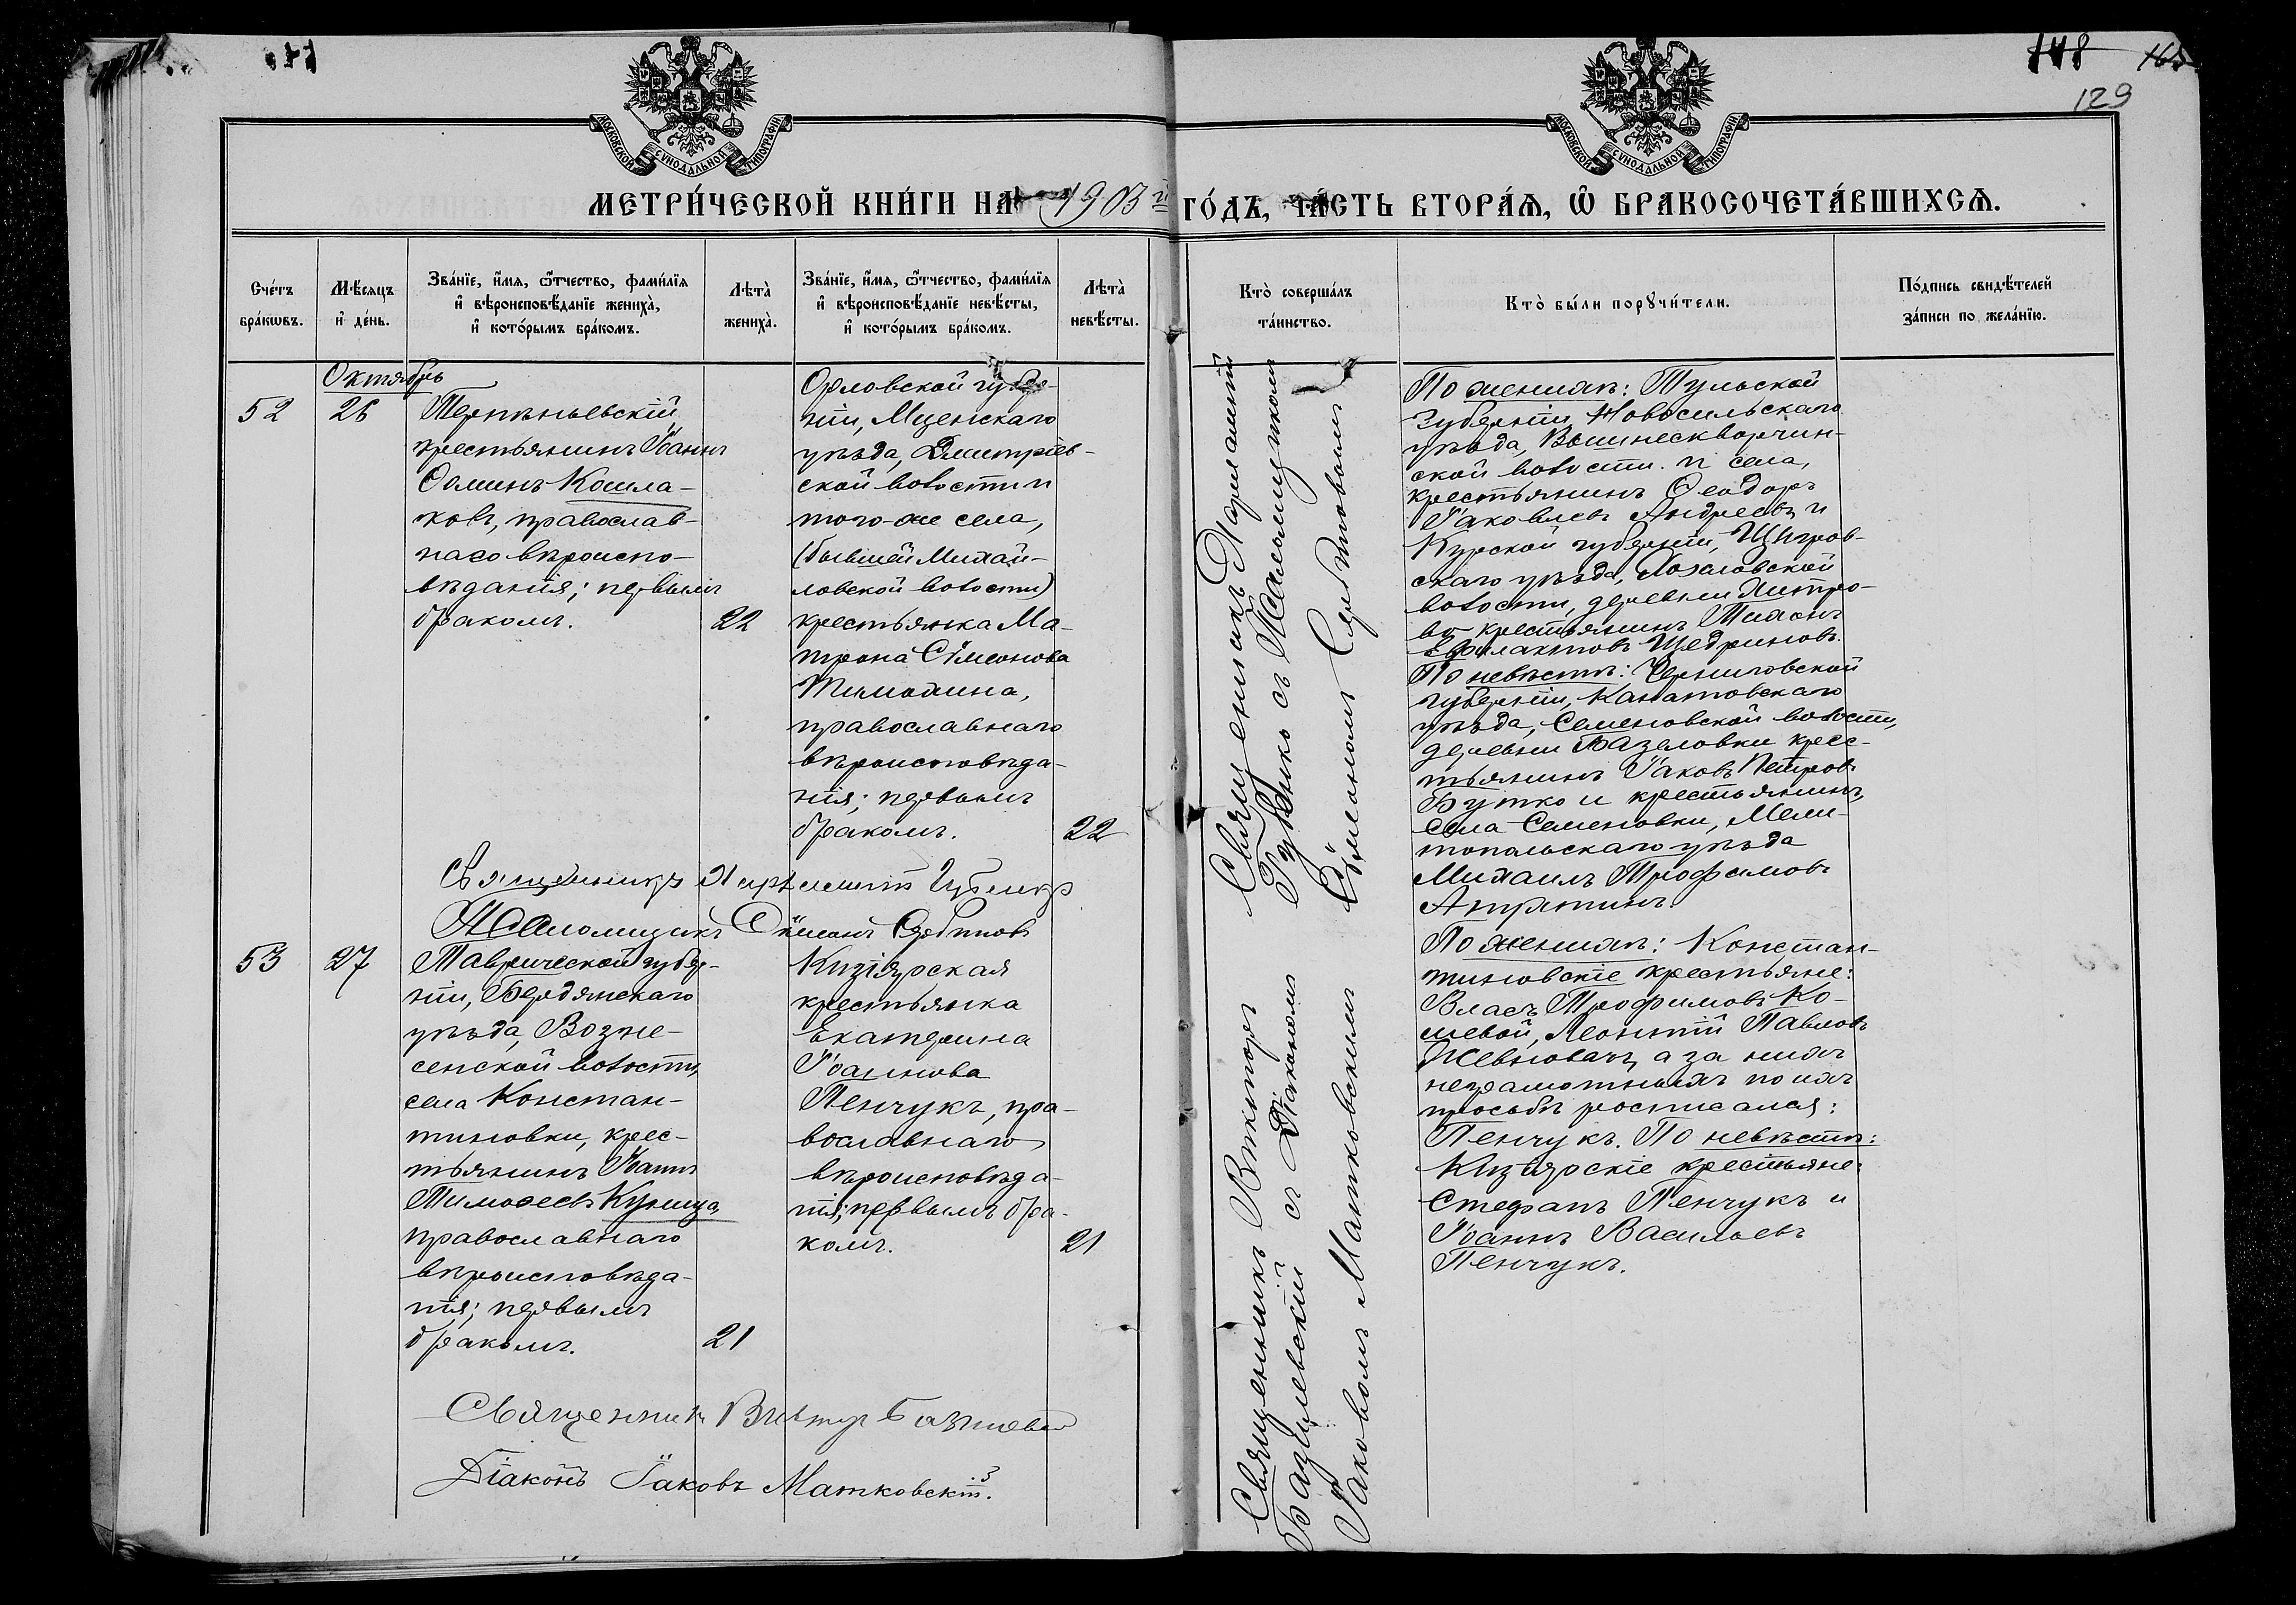 148
129
МОСКОВСКОЙ СѴНОДАЛЬНОЙ ТИПОГРАФІИ
МОСКОВСКОЙ СѴНОДАЛЬНОЙ ТИПОГРАФІИ
МЕТРИ́ЧЕСКОЙ КНИ́ГИ НА 1903й ГО́ДЪ, ЧА́СТЬ ВТОРА́Ѧ, Ѡ҆ БРАКОСОЧЕТА́ВШИХСѦ.
Сче́тъ
бра́кѡвъ.
Мѣ́сяцъ
и҆ де́нь.
Зва́нїе, и҆́мя, ѻ҆́тчество, фами́лїя
и҆ вѣроисповѣ́данїе жениха̀,
и҆ кото́рымъ бра́комъ.
Лѣта̀
жениха̀.
Зва́нїе, и҆́мя, ѻ҆́тчество, фами́лїя
и҆ вѣроисповѣ́данїе невѣ́сты,
и҆ кото́рымъ бра́комъ.
Лѣта̀
невѣ́сты.
Кто̀ соверша́лъ
та́инство.
Кто̀ бы́ли порꙋчи́тели.
По́дпись свидѣ́телей
за́писи по жела́нїю.
Октябрь
52
26
Терпѣньевскій
крестьянинъ Іоаннъ
Ѳоминъ Кошла-
ковъ, православ-
наго вѣроиспо-
вѣданія; первымъ
бракомъ.
22
Орловской губер-
ніи, Мценскаго
уѣзда, Дмитріев-
ской волости и
того-же села,
(бывшей Михай-
ловской волости)
крестьянка Ма-
трона Сѵмеонова
Тимохина,
православнаго
вѣроисповѣда-
нія; первымъ
бракомъ.
22
Священникъ Харлампій
Губенко с Псаломщикомъ
Сѵмеономъ Сербиновымъ
По женихѣ: Тульской
губерніи, Новосильскаго
уѣзда, Вышнескворчин-
ской волости и села,
крестьянинъ Ѳеодоръ
Іаковлевъ Андреевъ и
Курской губерніи, Щигров-
скаго уѣзда,
волости, деревни
крестьянинъ Тихонъ
Щедриновъ.
По невѣстѣ: Черниговской
губерніи,
уѣзда, Семеновской волости,
деревни крес-
тьянинъ Іаковъ Петровъ
Бутко и крестьянинъ
села Семеновки, Мели-
топольскаго уѣзда
Михаилъ Трофимовъ
Священникъ Харлампій Губенко
Псаломщикъ Сѵмеонъ Сербиновъ
53
27
Таврической губер-
ніи, Бердянскаго
уѣзда, Возне-
сенской волости,
села Констан-
тиновки, крес-
тьянинъ Іоаннъ
Тимоѳеевъ Куница,
православнаго
вѣроисповѣда-
нія; первымъ
бракомъ.
21
Кизіярская
крестьянка
Екатерина
Іоаннова
Пенчукъ, пра-
вославнаго
вѣроисповѣда-
нія; первымъ бра-
комъ.
21
Священникъ Викторъ
Базилевскій с Діакономъ
Іаковомъ Матковскимъ
По женихѣ: Констан-
тиновскіе крестьяне:
Власъ Трофимовъ Ко-
шевой, Леонтій Павловъ
а за нихъ
неграмотныхъ по ихъ
просьбѣ росписался:
Пенчукъ. По невѣстѣ:
Кизіярскіе крестьяне:
Стефанъ Пенчукъ и
Іоаннъ Васильевъ
Пенчукъ.
Священникъ Викторъ Базилевскій
Діаконъ Іаковъ Матковскій.